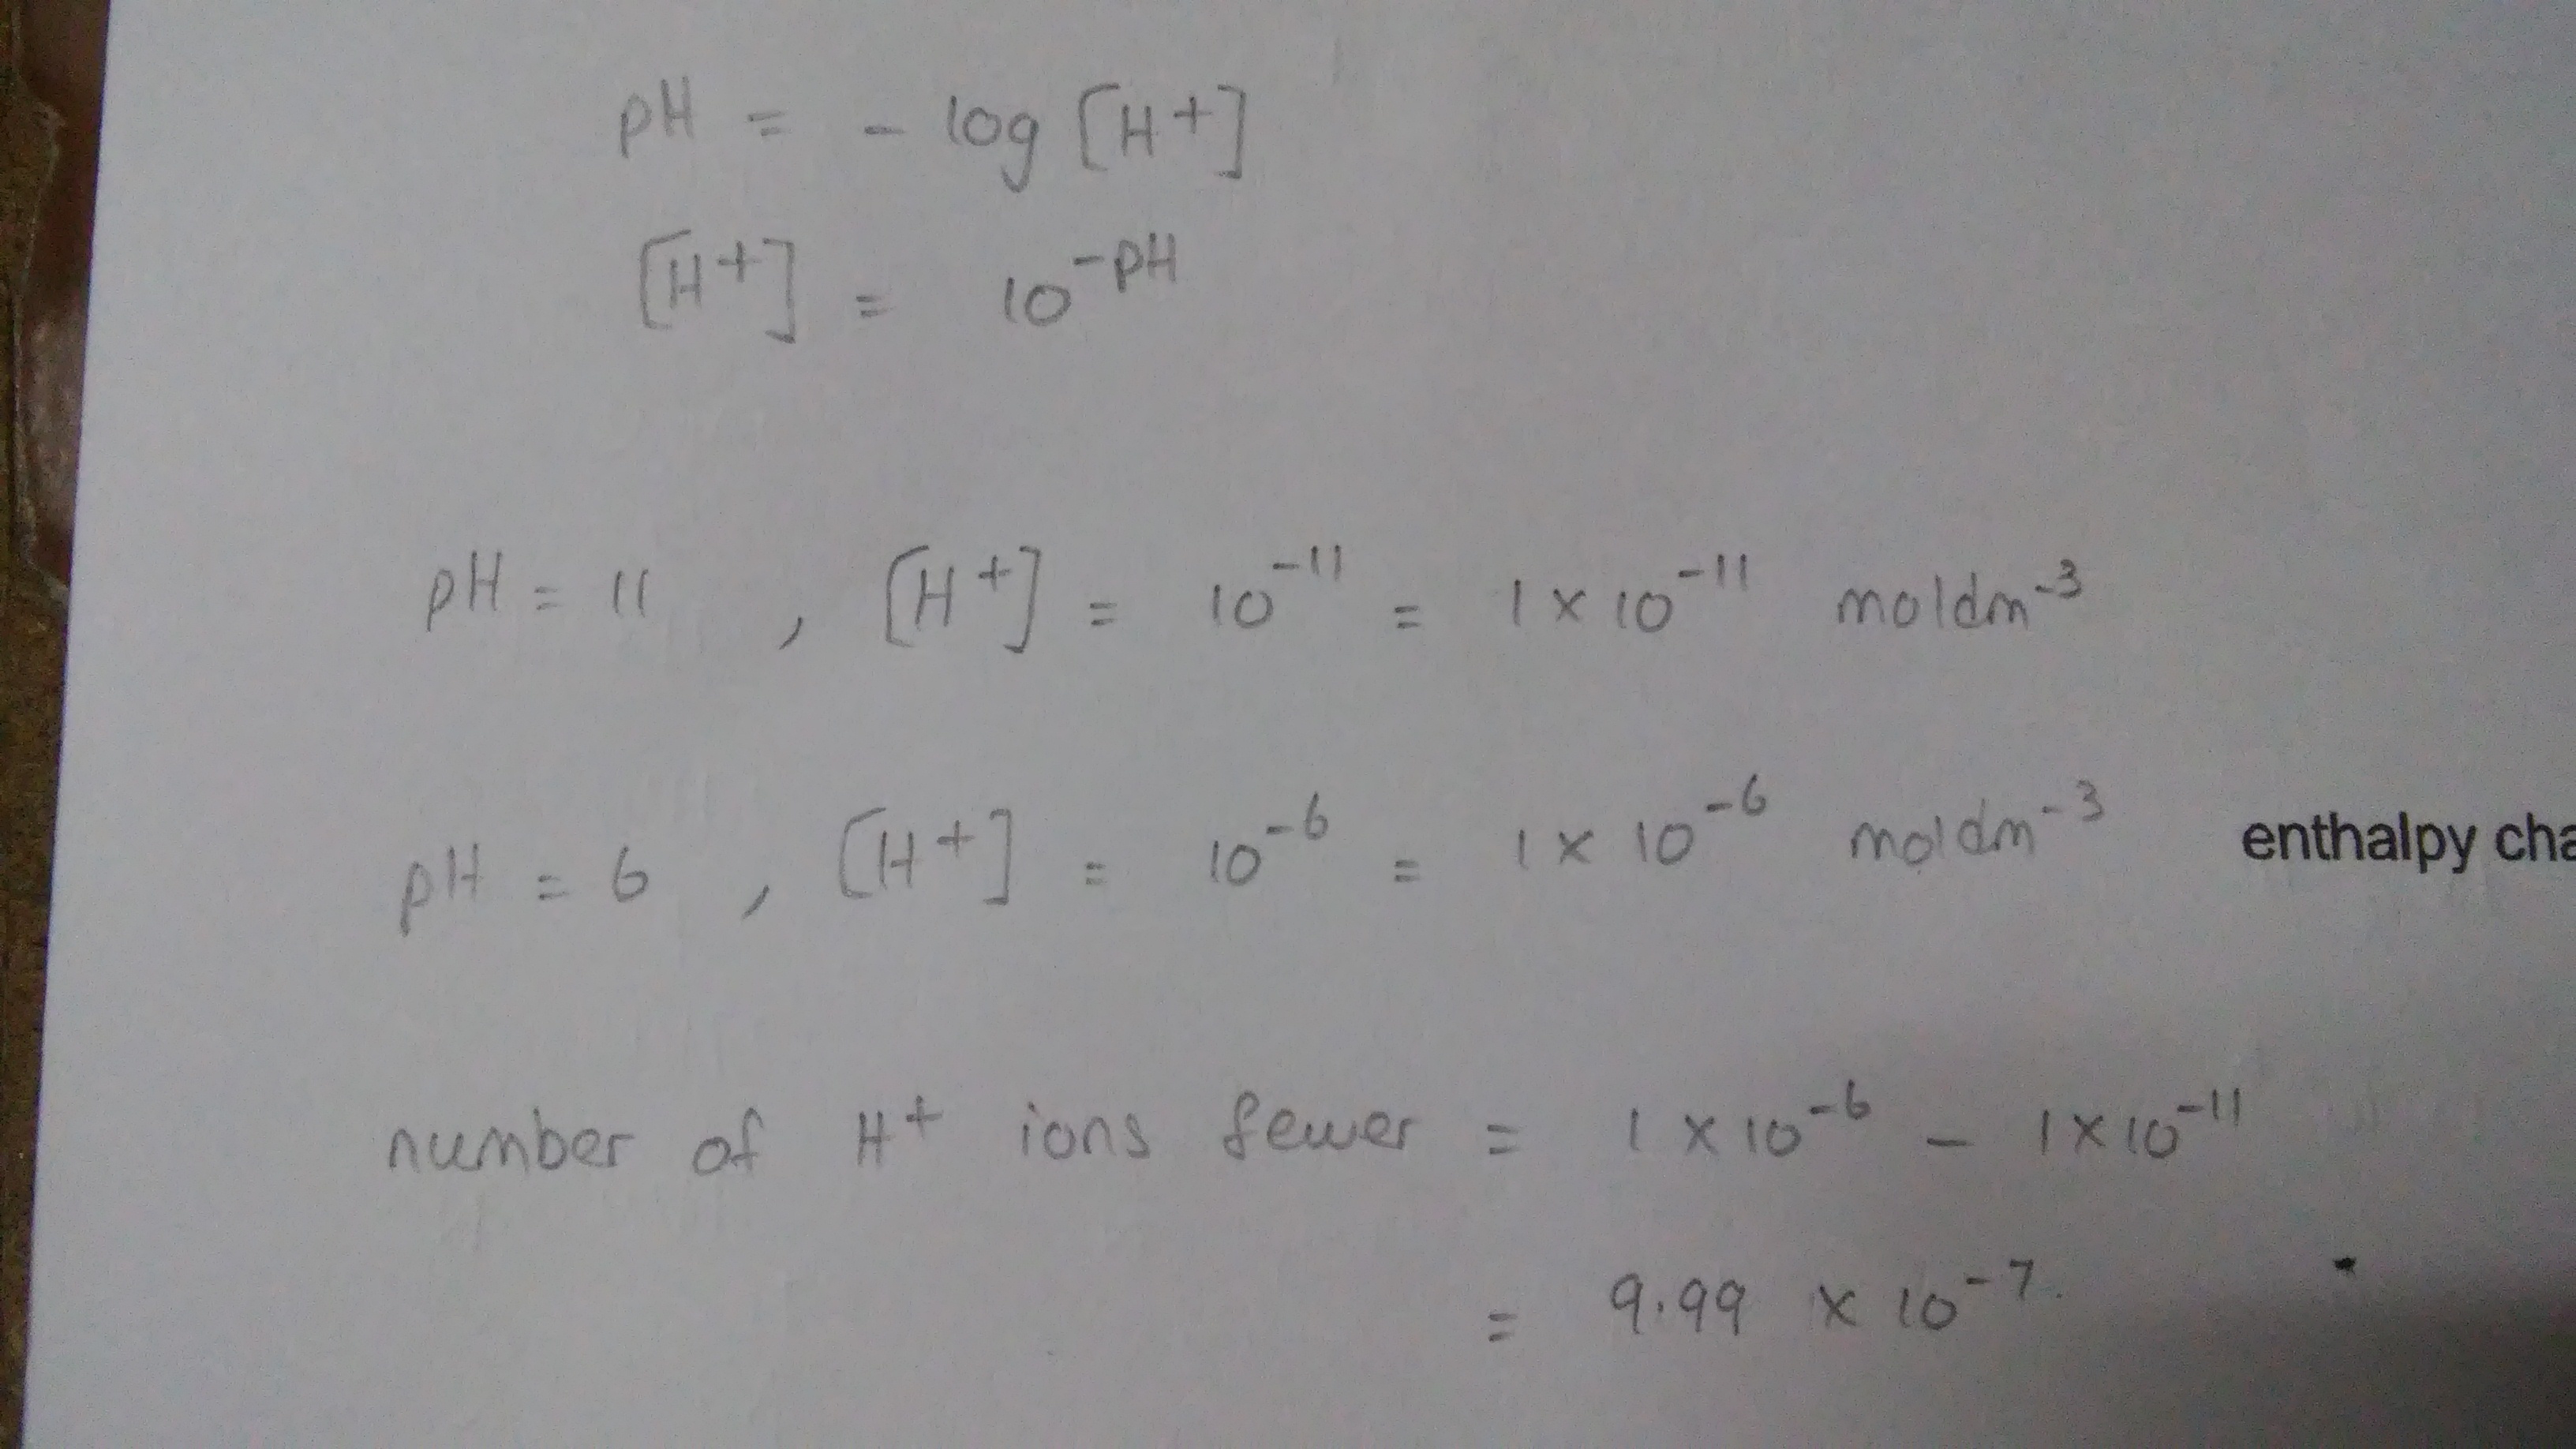 pH = - log [H+]
[H+] = 10^-pH
pH = 11 , [H+] = 10^-11 = 1 × 10^-11 moldm^-3
pH = 6 , [H+] = 10^-6 = 1 × 10^-6 moldm^-3
enthalpy cha
number of H+ ions fewer = 1 × 10^-6 - 1 × 10^-11
= 9.99 × 10^-7